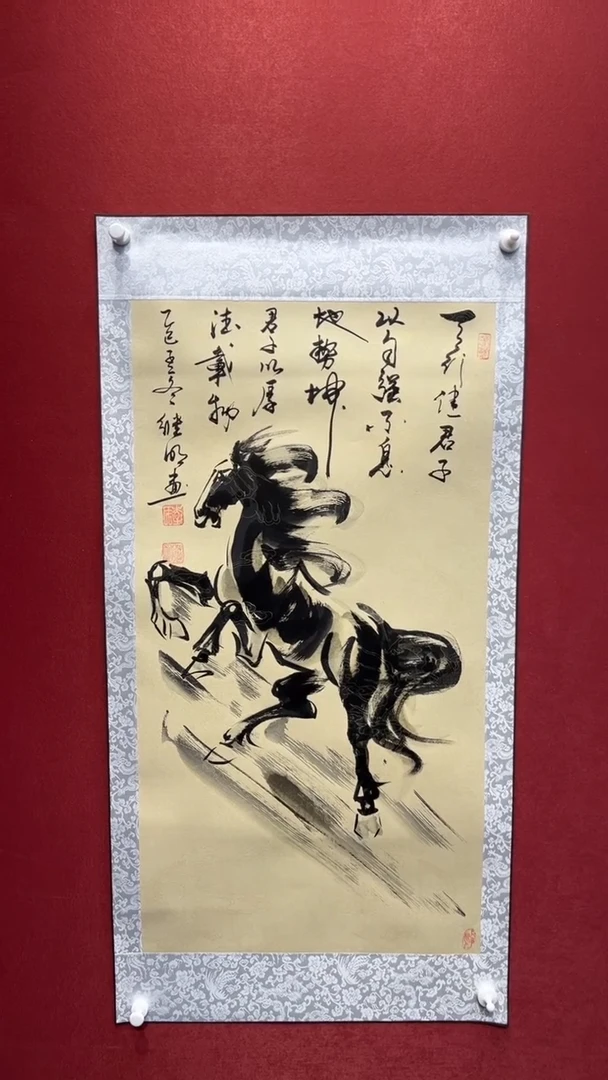 天行健君子
以自强不息
地勢坤
君子以厚
德載物
乙巳孟冬继明画